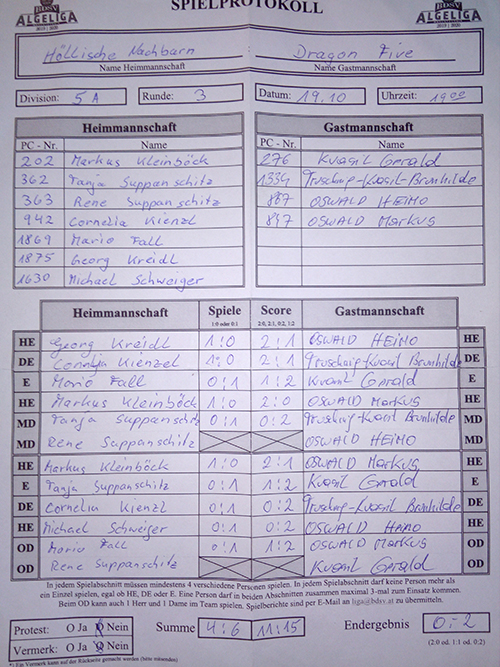 SPIELPROTOKOLL
BDSV
ALGELIGA
2019 | 2020
BDSV
ALGELIGA
2019 | 2020
Höllische Nachbarn : Dragon Five
Name Heimmannschaft Name Gastmannschaft
Division: 5 A Runde: 3 Datum: 19.10 Uhrzeit: 19 00
Heimmannschaft Gastmannschaft
PC - Nr. Name PC - Nr. Name
202 Markus Kleinböck 276 Kvasil Gerald
362 Tanja Suppanschitz 1334 Truschnig-Kvasil-Brunhilde
363 Rene Suppanschitz 887 OSWALD HEIMO
942 Cornelia Kienzl 847 OSWALD Markus
1869 Mario Fall
1875 Georg Kreidl
1630 Michael Schweiger
Heimmannschaft Spiele Score Gastmannschaft
1:0 oder 0:1 2:0, 2:1, 0:2, 1:2
HE Georg Kreidl 1:0 2:1 OSWALD HEIMO HE
DE Cornelja Kienzel 1:0 2:1 Truschnig-Kvasil Brunhilde DE
E Mario Fall 0:1 1:2 Kvasil Gerald E
HE Markus Kleinböck 1:0 2:0 OSWALD Markus HE
MD Tanja Suppanschitz 0:1 0:2 Truschnig-Kvasil Brunhilde MD
MD Rene Suppanschitz OSWALD HEIMO MD
HE Markus Kleinböck 1:0 2:1 OSWALD Markus HE
E Tanja Suppanschitz 0:1 1:2 Kvasil Gerald E
DE Cornelia Kienzl 0:1 0:2 Truschnig-Kvasil Brunhilde DE
HE Michael Schweiger 0:1 0:2 OSWALD HEIMO HE
OD Mario Fall 0:1 1:2 OSWALD Markus OD
OD Rene Suppanschitz Kvasil Gerald OD
In jedem Spielabschnitt müssen mindestens 4 verschiedene Personen spielen. In jedem Spielabschnitt darf keine Person mehr als
ein Einzel spielen, egal ob HE, DE oder E. Eine Person darf in beiden Abschnitten zusammen maximal 3-mal zum Einsatz kommen.
Beim OD kann auch 1 Herr und 1 Dame im Team spielen. Spielberichte sind per E-Mail an liga@bdsv.at zu übermitteln.
Protest: O Ja O Nein Summe 4:6 11:15 Endergebnis 0:2
Vermerk: O Ja O Nein (2:0 od. 1:1 od. 0:2)
*) Ein Vermerk kann auf der Rückseite gemacht werden (bitte wenden)